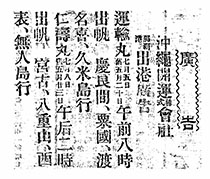 廣告
沖繩開運株式會社
出港廣告
運輸丸 五月二十日 午前八時
出帆 慶良間、粟國、渡
名喜、久米島行
仁壽丸 午后二時
出帆 宮古、八重山、酉
表、無人島行